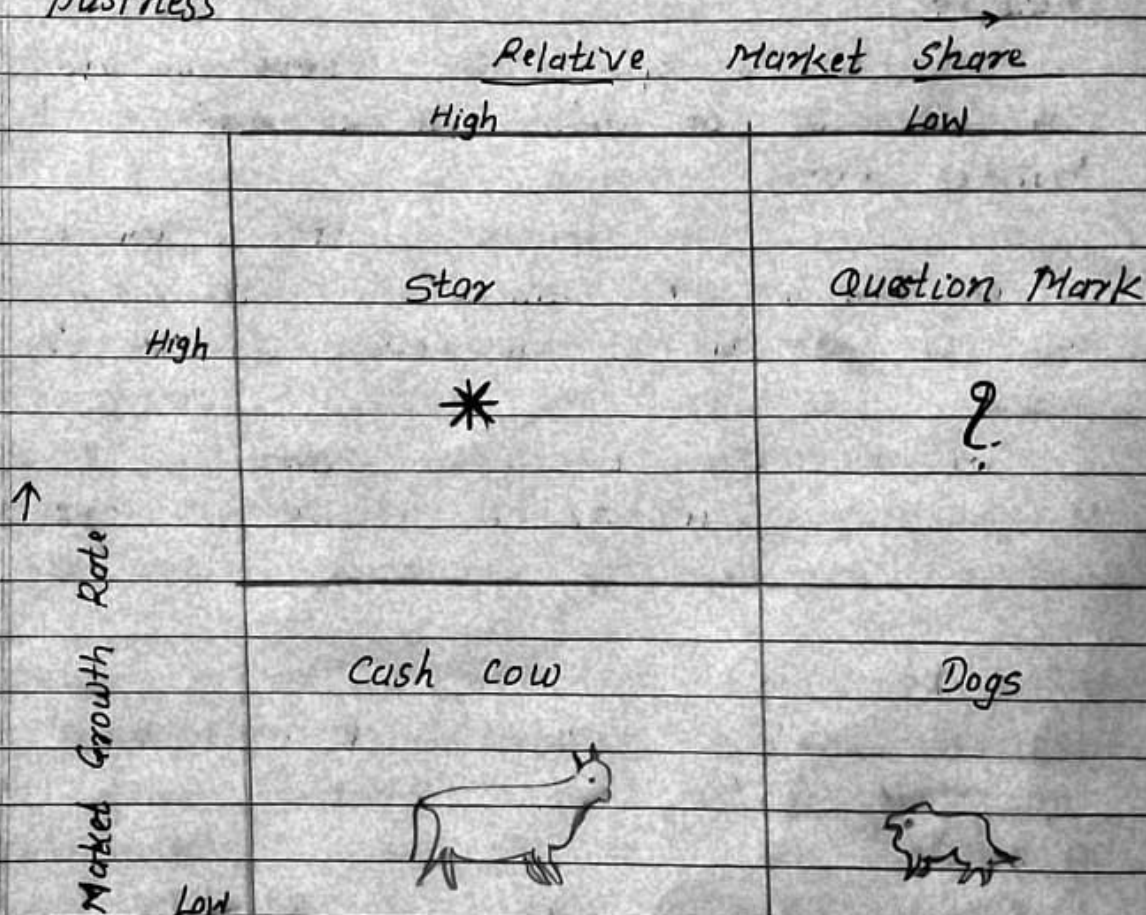 business
Relative Market Share
High Low
Star Question Mark
High
?
Market Growth Rate
Cash Cow Dogs
Low